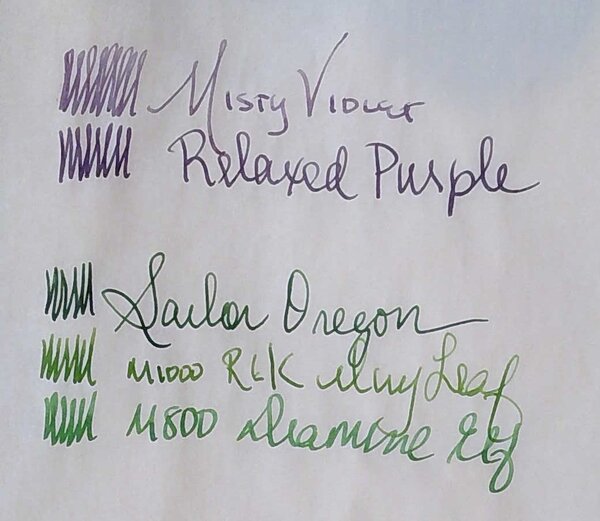 Misty Violet
Relaxed Purple
Sailor Oregon
M1000 R&K Leaf
M800 Diamine Elf